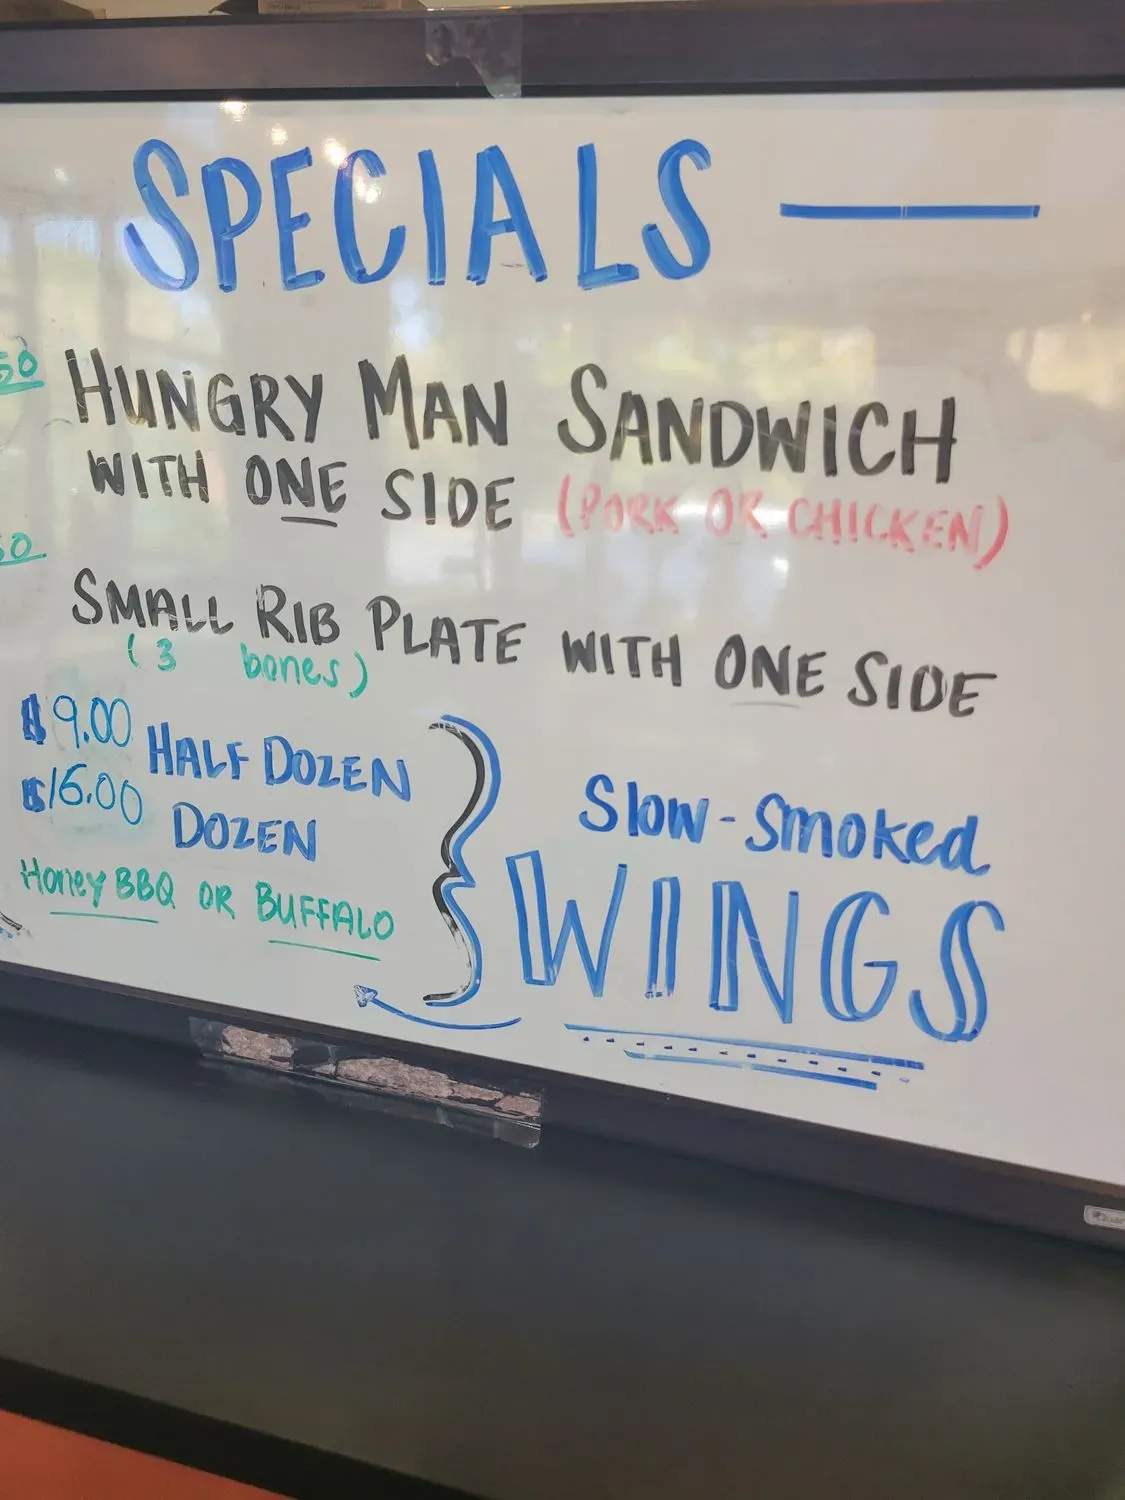 SPECIALS —
50 HUNGRY MAN SANDWICH
WITH ONE SIDE (PORK OR CHICKEN)
50
SMALL RIB PLATE WITH ONE SIDE
(3 bones)
$9.00 HALF DOZEN
$16.00 DOZEN
Honey BBQ OR BUFFALO
Slow-smoked
WINGS